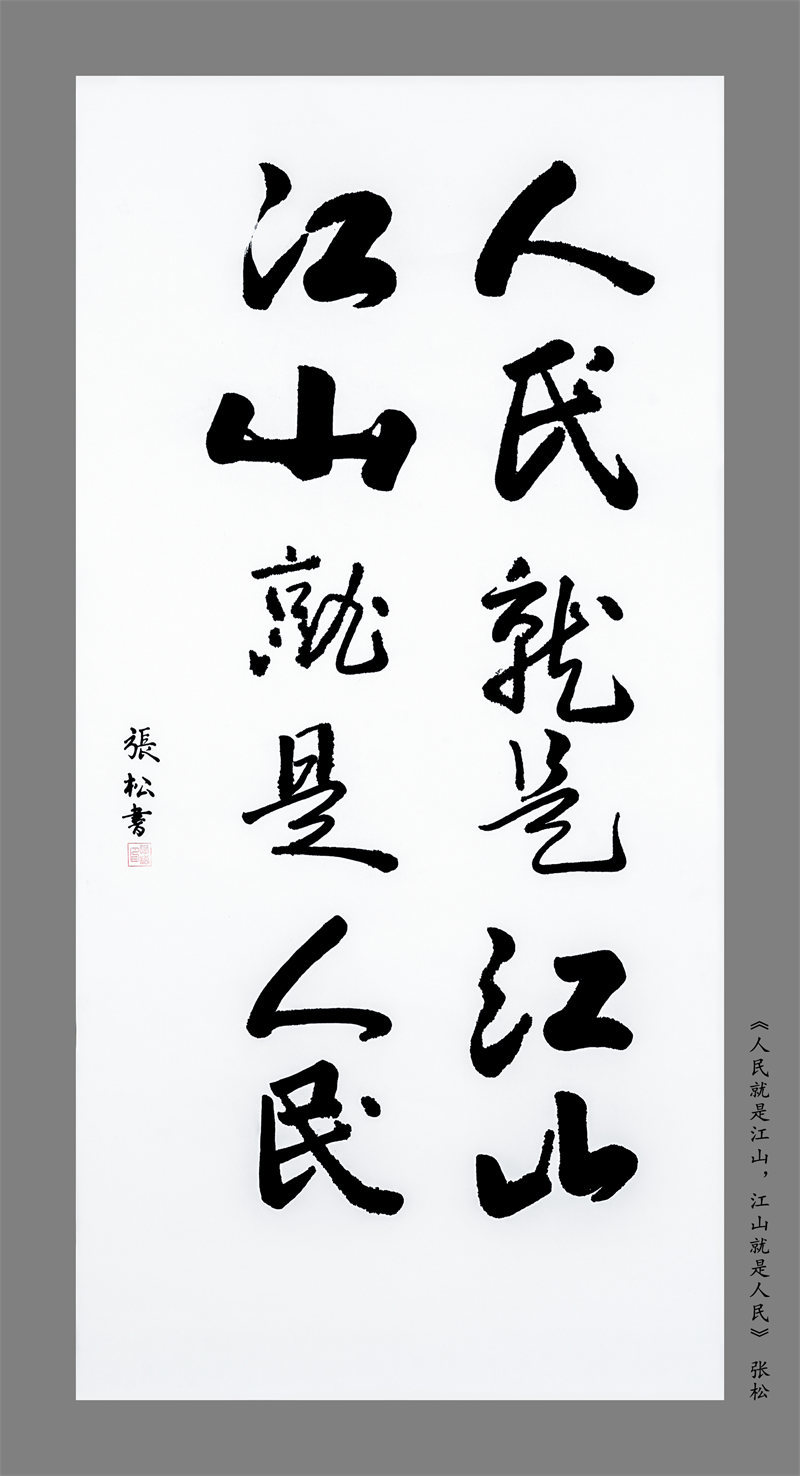 人民就是江山
江山就是人民
張松書
《人民就是江山，江山就是人民》 张松